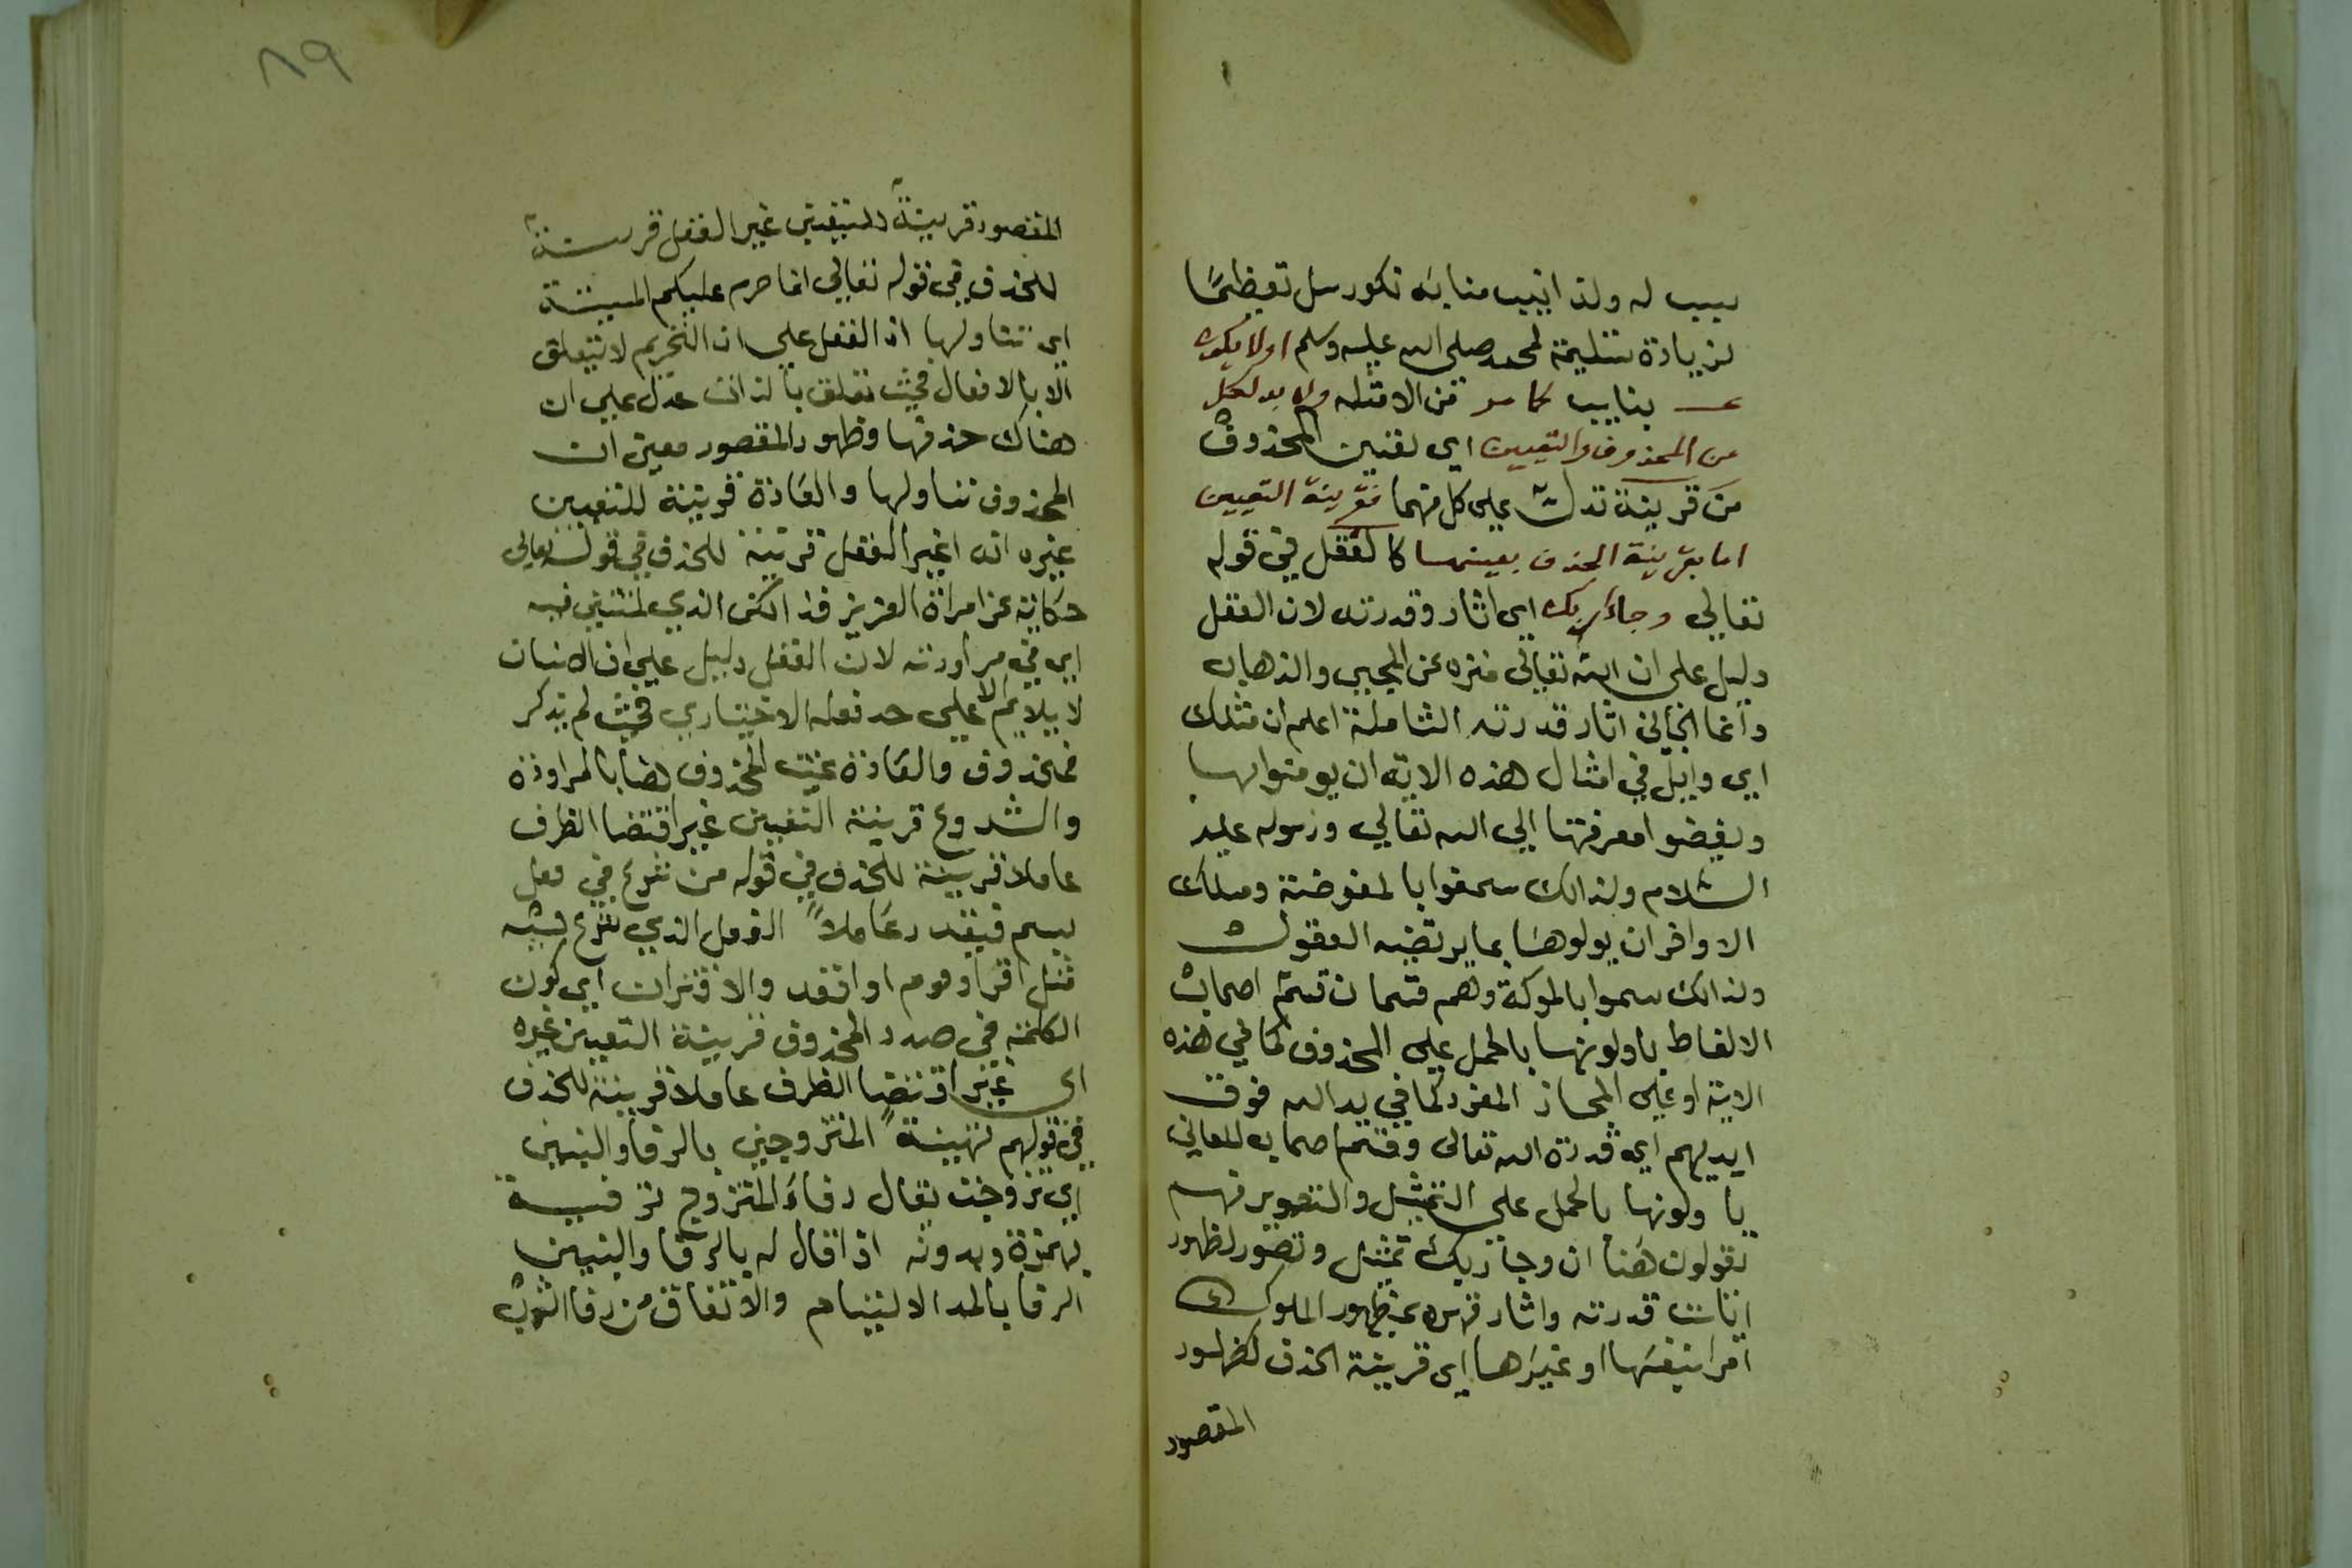 سبب له ولذا انيب منابه نكور سل تعظيمًا
لزيادة تسلية لمحمد صلى الله عليه وسلم اولا يكون
بنايب كما مر من الامثله ولا بد لكل
من المحذوف والتعيين اي تعيين المحذوف
من قرينة تدل على كل منهما فقرينة التعيين
اما بقرينة الحذف بعينها كالعقل في قوله
تعالي وجاء ربك اي اثار وقدرته لان العقل
دليل على ان الله تعالى منزه عن المجيي والذهاب
وانما الجائي اثار قدرته الشاملة اعلم ان مسلك
الاوايل في امثال هذه الاية ان يومنوا بها
ويفوضوا معرفتها الي الله تعالي ورسوله عليه
السلام ولذالك سموا بالمفوضة ومسلك
الاواخر ان يولوها بما يرتضيه العقول
ولذالك سموا بالموله وهم قسمان قسم اصحاب
الالفاظ ياولونها بالحمل علي المحذوف كما في هذه
الاية او علي المجاز المفرد كما في يد الله فوق
ايديهم اي قدرة الله تعالى وقسم اصحاب المعاني
ياولونها بالحمل علي التمثيل والتصوير فهم
يقولون هنا ان وجا ربك تمثيل وتصوير لظهور
ايات قدرته واثار قهره بظهور الملوك
امرا بنفسها او غيرها اي قرينة الحذف كظهور
المقصود
٨٩
المقصود قرينة للتعيين غير العقل قرينة
للحذف في قوله تعالي انما حرم عليكم الميتة
اي تناولها اذ العقل علي ان التحريم لا يتعلق
الا بالافعال فحيث تعلق بالذات عدل علي ان
هناك حذفها وظهور المقصود معين ان
المحذوف تناولها والعادة قرينة للتعيين
غيره اي غير العقل قرينة للحذف في قوله تعالى
حكاية عن امراة العزيز فذالكن الذي لمتنني فيه
اي في مراودته لان العقل دليل علي ان الانسان
لا يلايم الا علي حد فعله الاختياري فحيث لم يذكر
فمحذوف والعادة عينت المحذوف هنا بالمراودة
والشروع قرينة التعيين غير اقتضا الظرف
عاملا قرينة للحذف في قوله من شرع في فعل
بسم فيقدر عاملاً الفعل الذي شرع فيه
مثل اقرا وقوم او اقعد والاقتران اي كون
الكلمة في صدد المحذوف قرينة التعيين غيره
اي غير اقتضا الظرف عاملا قرينة للحذف
في قولهم تهنيةً المتزوجين بالرفا والبنين
اي تزوجت يقال رفاء المتزوج ترفية
بهمزة وبدونه اذا قال له بالرفا والبنين
الرفا بالمد الالتيام والاتفاق من رفا الثوب